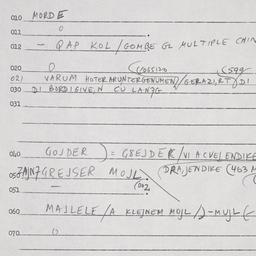 010 MORDE
0
011
012 - GAP KOL / GOMBE GL MULTIPLE CHIN
020 0
021 VARUM HOTER ARUNTERGENUMEN / GERAZIRT) DI
030 DI BORD IGIVE,N CU LANGG
031
040 GOJDER ) = GREJDER / VI ACVEJENDIKE
050 ZAJN? GREJSER MOJL (DRAJENDIKE (463 M
051 - (DO2
060 MAJLELE / A KLEJNEM MOJL /)-MUJL (-
070 0